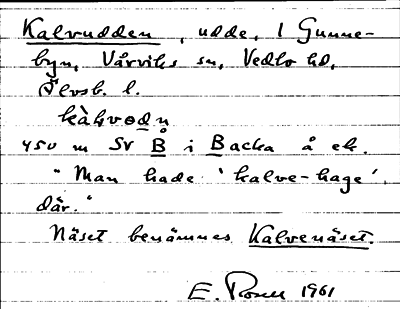 Kalvudden, udde, i Gunne-
byn, Vårviks sn, Vedbo hd,
Älvsb. l.
kàlvvedn
450 m SV B i Backa å ek.
"Man hade 'kalve-hage'
där."
Näset benämnes Kalvenäset.
E. Rosell 1961